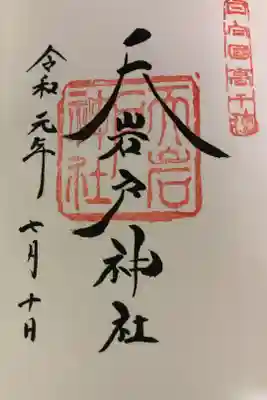 日向国高千穂
天岩戸神社
天岩戸神社
令和元年
七月十日